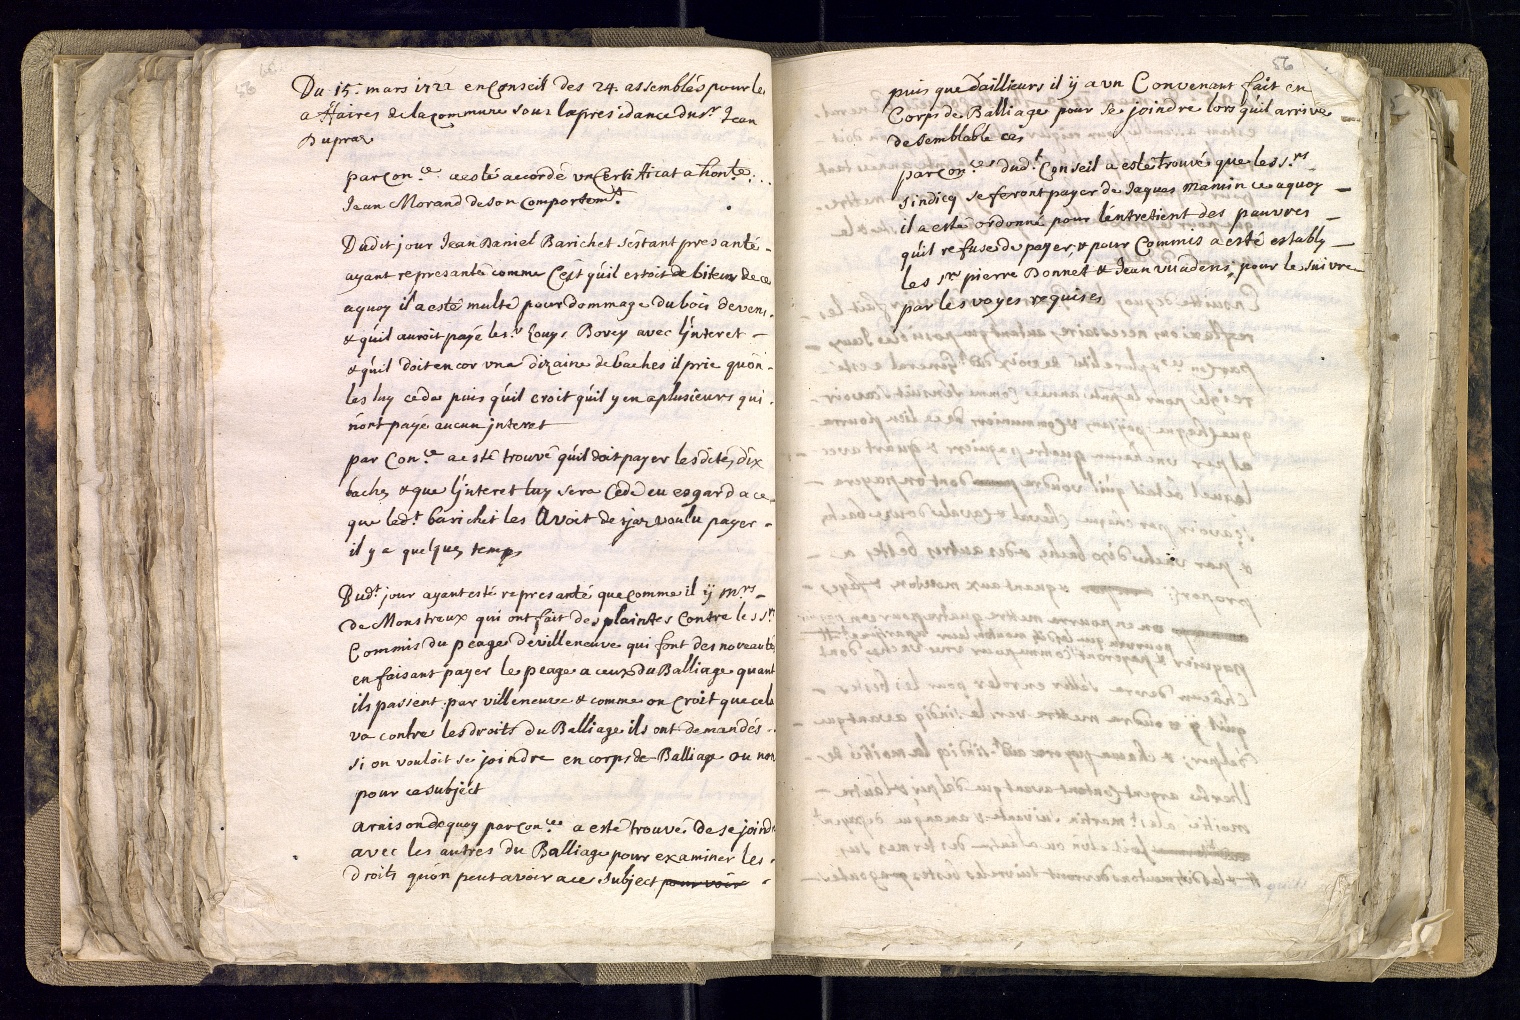 Du 15.e mars 1722 en Conseil des 24. assemblés pour les
affaires de la commune sous la presidance du s.r Jean
Dupraz
par Con.ce a esté accordé un Certifficat a hon.te
Jean Morand de son comportem.t
Dudit jour Jean Daniel Barichet s'estant presanté
ayant represanté comme C'est qu'il estoit debiteur de ce
aquoy il a esté multé pour dommage du bois devens
& qu'il auroit payé le s.r Louys Bovey avec l'jnteret
& qu'il doit encor une dizaine de baches il prie qu'on
les luy cede puis qu'il croit qu'il y en a plusieurs qui
n'ont payé aucun jnteret
par Con.ce a esté trouvé qu'il doit payer lesdites dix
baches & que l'jnteret luy sera Cedé eu esgard a ce
que led.t barichet les Avoit desjaz voulu payer
il y a quelques temps
Dud.t jour ayant esté represanté que comme il ÿ m.rs
de Monstreux qui ont fait des plaintes Contre les s.rs
Commis du peage de villeneuve qui font des noveautés
en faisant payer le peage a ceux du Balliage quant
ils passent par villeneuve & comme on Croit que cela
va contre les droits du Balliage ils ont demandés
si on vouloit se joindre en corps de Balliage ou non
pour ce subject
a raison dequoy par Con.ce a esté trouvé de se joindre
avec les autres du Balliage pour examiner les
droits qu'on peut avoir a ce subject pour voir
56
puis que d'ailleurs il ÿ a un Convenant fait en
Corps de Balliage pour se joindre lors qu'il arrive
de semblable cas
par Con.ce dud.t Conseil a esté trouvé que les s.rs
sindicq se feront payer de Jaques Mamin ce aquoy
il a esté ordonné pour l'entretient des pauvres
qu'il refuse de payer, & pour Commis a esté establÿ
les s.rs pierre Bonnet & Jean vuadens pour le suivre
par les voyes requises